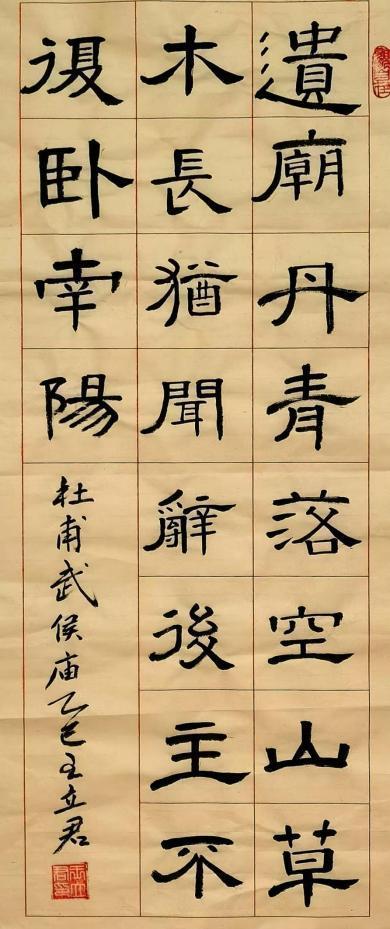 遺廟丹青落空山草
木長猶聞辭後主不
復卧南陽
杜甫武侯庙乙巳王立君